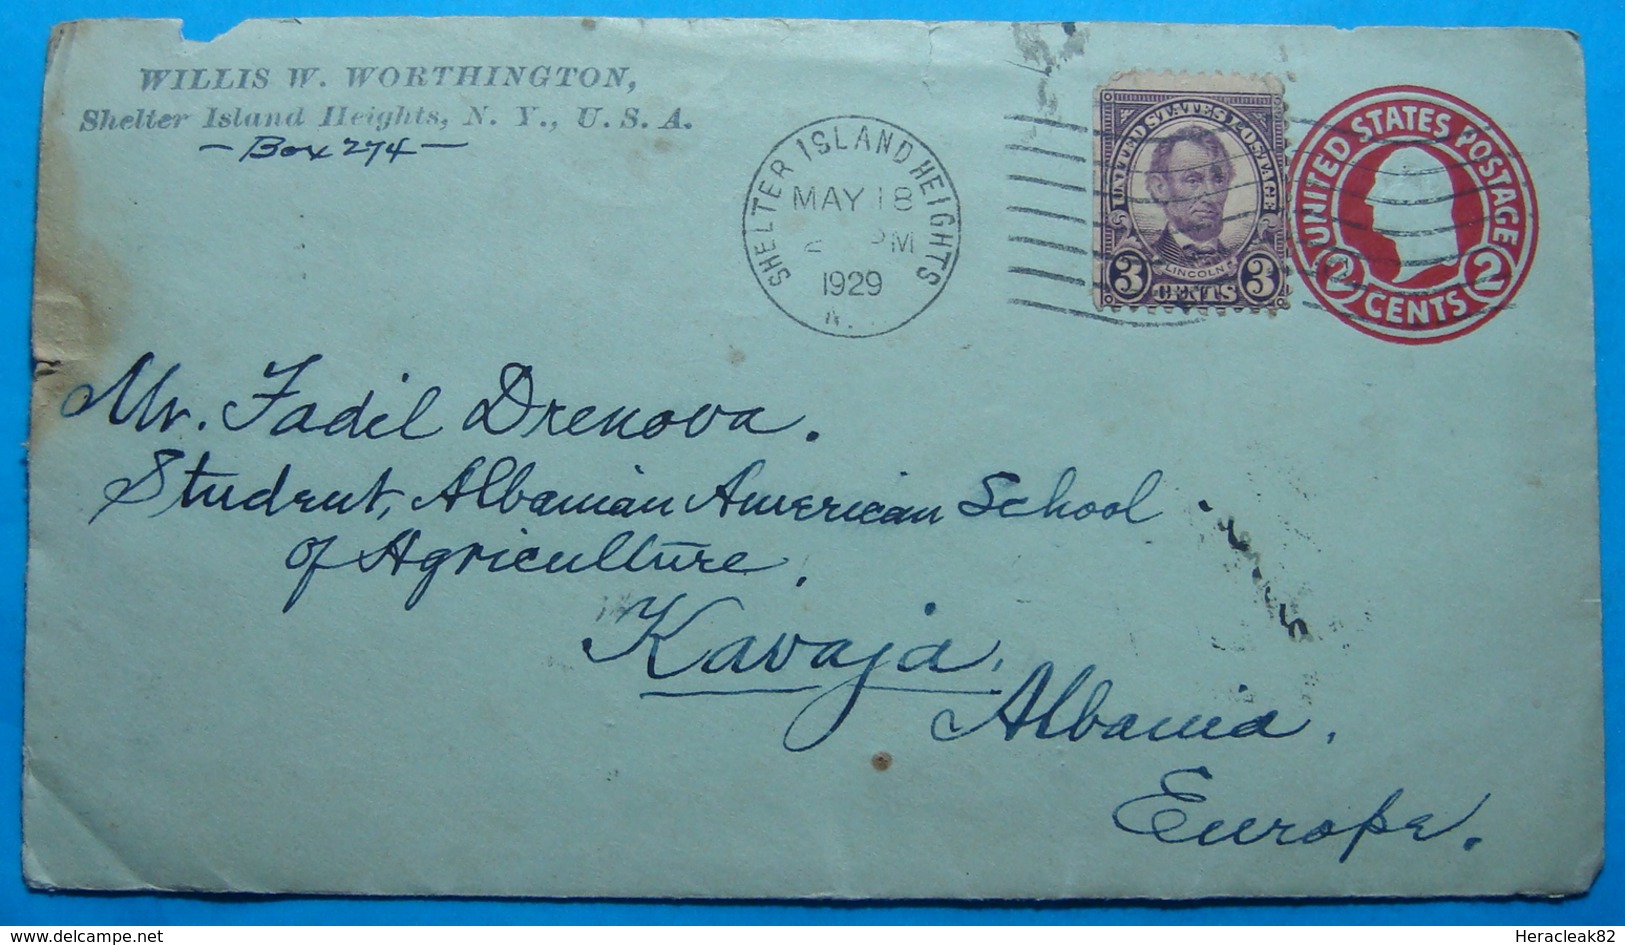 WILLIS W. WORTHINGTON,
Shelter Island Heights, N. Y., U. S. A.
— Box 274 —
SHELTER ISLAND HEIGHTS
MAY 18
PM
1929
N.
UNITED STATES POSTAGE
LINCOLN
3 CENTS 3
UNITED STATES POSTAGE
2 CENTS 2
Mr. Fadil Drenova.
Student, Albanian American School
of Agriculture.
Kavaja.
Albania.
Europe.
www.delcampe.net
Heracleak82